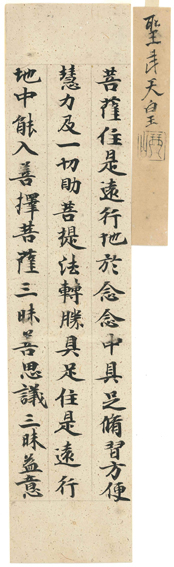 聖武天皇
菩薩住是遠行地於念念中具足脩習方便
慧力及一切助菩提法轉勝具足住是遠行
地中能入善擇菩薩三昧善思議三昧益意